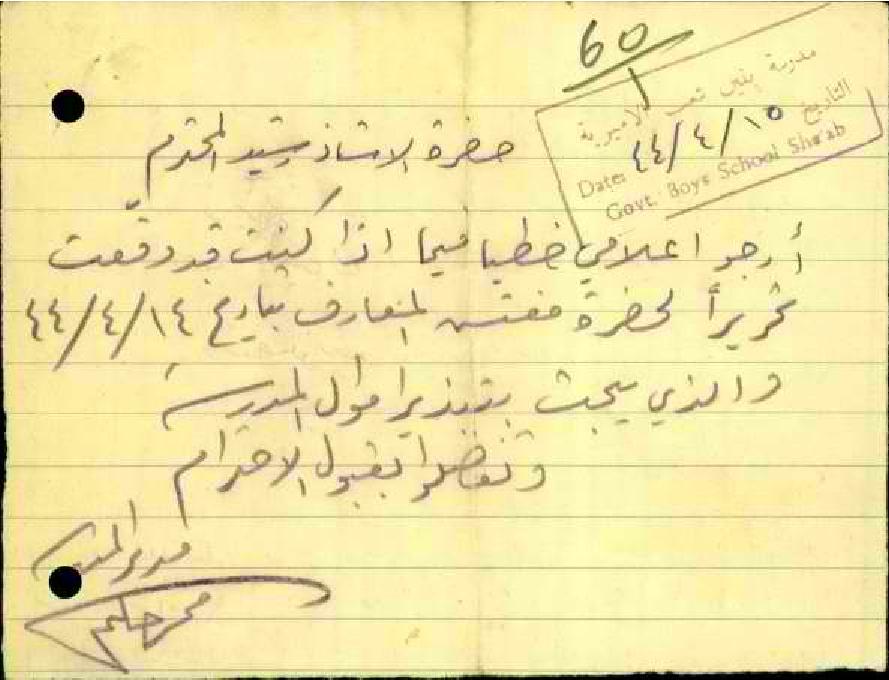 60
1
مدرسة بنين شعب الاميرية
التاريخ ١٥/٤/٤٤
Date:
Govt. Boys School Sha'ab
حضرة الاستاذ رشيد المحترم
أرجو اعلامي خطيا فيما اذا كنت قد وقّعت
تحريراً لحضرة مفتش المعارف بتاريخ ١٤/٤/٤٤
والذي يبحث بتبذير اموال المدرسة
وتفضلوا بقبول الاحترام
مدير المدرسة